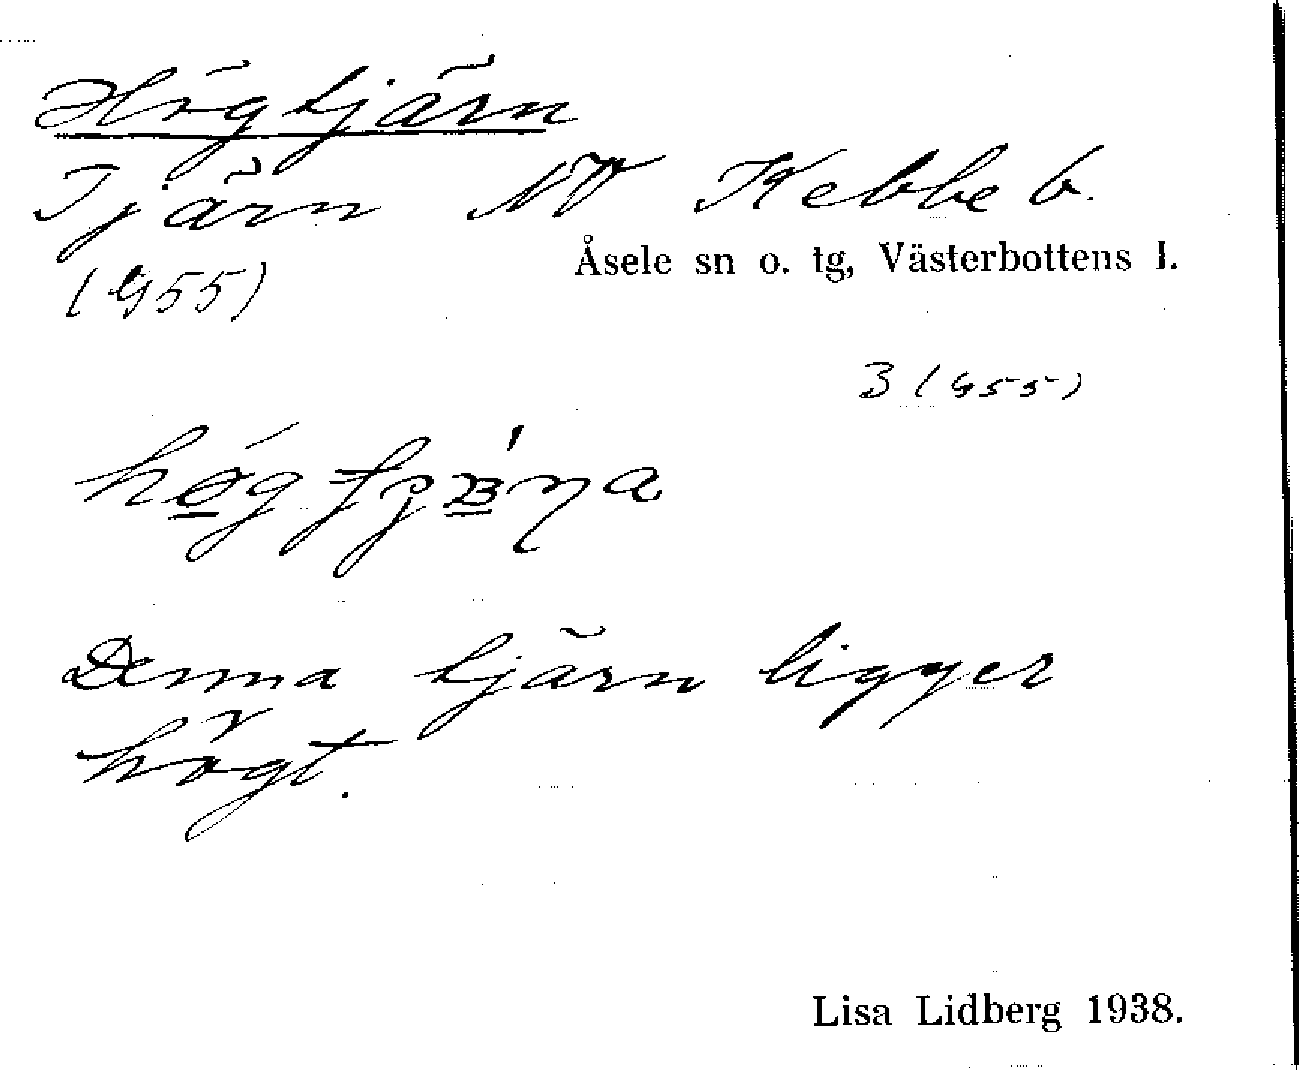 Högtjärn
Tjärn NV Kebbe b.
Åsele sn o. tg, Västerbottens l.
(G55)
B (G55)
Denna tjärn ligger
högt.
Lisa Lidberg 1938.